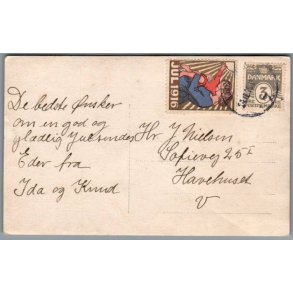 De bedste Ønsker
om en god og
glædlig Jul sendes
Eder fra
Ida og Knud
JUL 1916
DANMARK
3
Hr J Nielsen
Sofievej 25 I
Havehuset
V